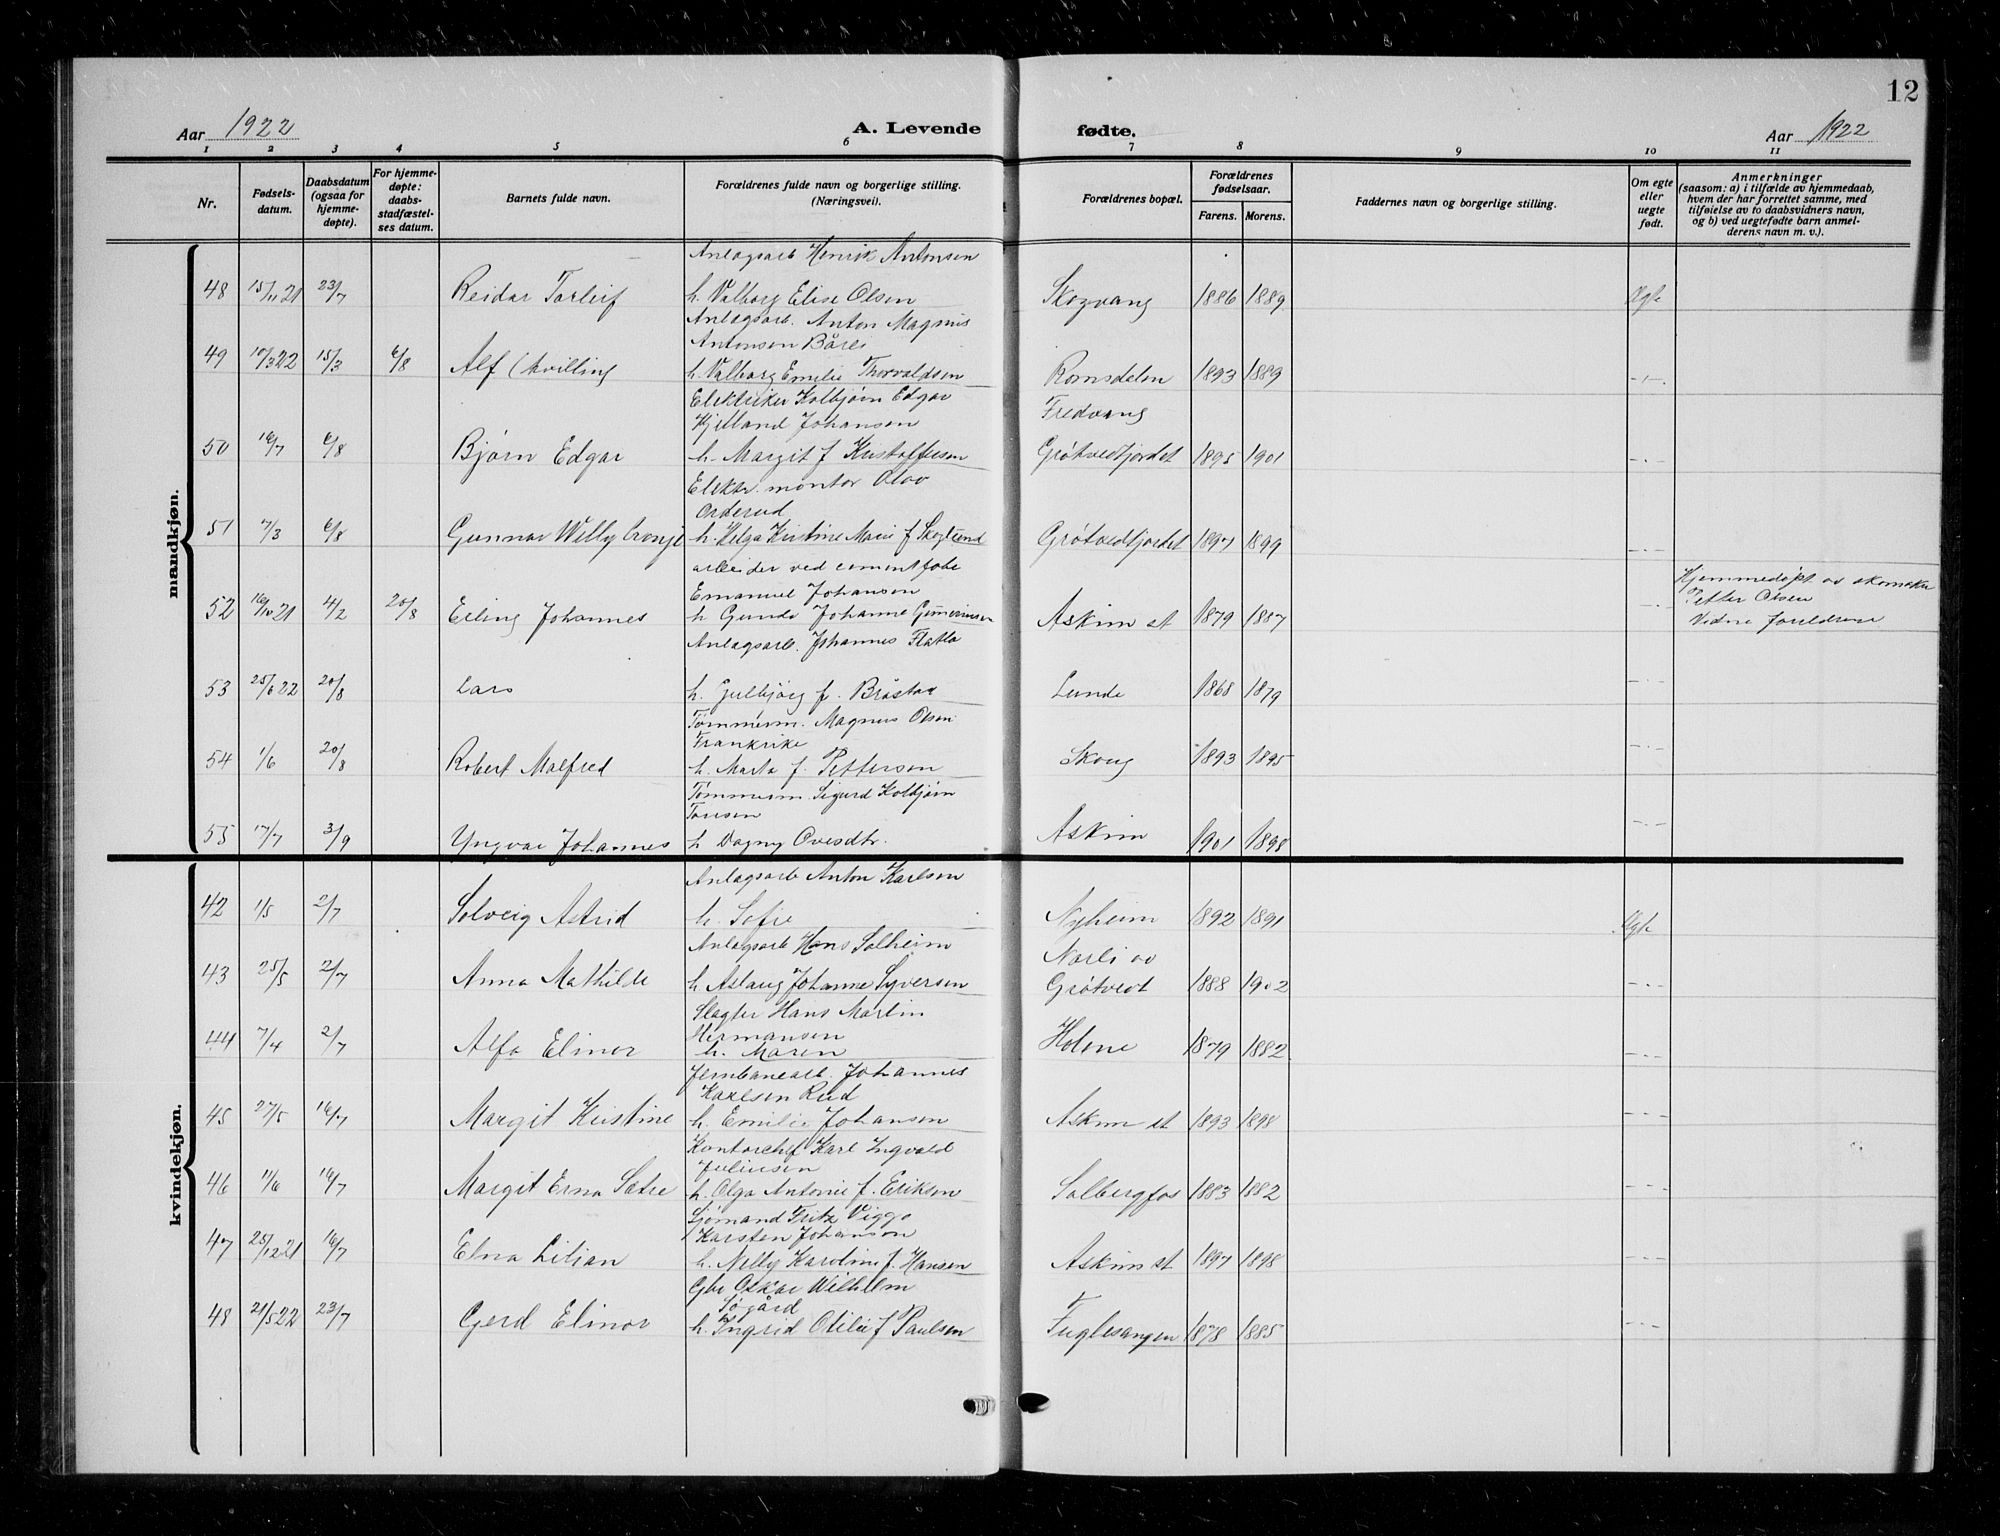 12
Aar 1922 A. Levende fødte. Aar 1922
1 2 3 4 5 6 7 8 9 10 11
Nr. Fødsels-datum. Daabsdatum (ogsaa for hjemme-døpte). For hjemme-døpte: daabs-stadfæstel-ses datum. Barnets fulde navn. Forældrenes fulde navn og borgerlige stilling. (Næringsvei). Forældrenes bopæl. Forældrenes fødselsaar. Farens. Morens. Faddernes navn og borgerlige stilling. Om egte eller uegte født. Anmerkninger (saasom: a) i tilfælde av hjemmedaab, hvem der har forrettet samme, med tilføielse av to daabsvidners navn, og b) ved uegtefødte barn anmel-derens navn m. v.).
mandkjøn.
Anlagsarb Henrik Antonsen
48 15/11 21 23/7 Reidar Torleif h. Valborg Elise Olsen Skogvang 1886 1889 Egte
Anlagsarb. Anton Magnus
Antonsen Båreli
49 10/3 22 15/3 6/8 Alf (tvilling h. Valborg Emilie Thorvaldsen Romsdalen 1893 1889 - - -
Elektriker Kolbjørn Edgar
Hjelland Johansen Fredvang
50 16/7 6/8 Bjørn Edgar h. Margit f Kristoffersen Grøtvedtjordet 1895 1901 - - -
Elektr. montør Olav
Orderud
51 7/3 6/8 Gunnar Willy Cronje h. Helga Kristine Marie f Skoglund Grøtvedtjordet 1897 1899 - - -
arbeider ved cementfabr
Emanuel Johansen Hjemmedøpt av skomaker
52 16/10 21 4/2 20/8 Erling Johannes h Gunda Johanne Gundersen Askim st 1879 1887 - - - Petter Olsen
Anlagsarb. Johannes Flatla Vidne foreldrene
53 25/6 22 20/8 Lars h. Gulbjørg f. Bråstad Lunde 1868 1879 - - -
Tømmerm. Magnus Olsen
Frankrike
54 1/6 20/8 Robert Malfred h. Marta f. Pettersen Skoug 1893 1895 - - -
Tømmerm. Sigurd Kolbjørn
Tonsen
55 17/7 3/9 Yngvar Johannes h Dagny Ovesdtr. Askim 1901 1898 - - -
kvindekjøn.
Anlagsarb Anton Karlsen
42 1/5 2/7 Solveig Astrid h. Sofie Nyheim 1892 1891 Egte
Anlagsarb Hans Solheim Narli av
43 25/5 2/7 Anna Mathilde h Aslaug Johanne Syversen Grøtvedt 1888 1902 - - -
Slagter Hans Martin
Hermansen
44 7/4 2/7 Alfa Elinor h. Maren Holone 1879 1882 - - -
Jernbanearb. Johannes
Karlsen Rud
45 27/5 16/7 Margit Kristine h. Emilie Johansen Askim st 1893 1898 - - -
Kontorchef Karl Ingvald
Juliusen
46 11/6 16/7 Margit Erna Sætre h. Olga Antonie f. Eriksen Solbergfos 1883 1882 - - -
Sjømand Fritz Viggo
Karsten Johanson
47 25/12 21 16/7 Elna Lilian h. Nelly Karoline f. Hansen Askim st 1897 1898 - - -
Gbr Oskar Wilhelm
Søgård
48 21/5 22 23/7 Gerd Elinor h. Ingrid Otilie f Paulsen Fuglesangen 1878 1885 - - -